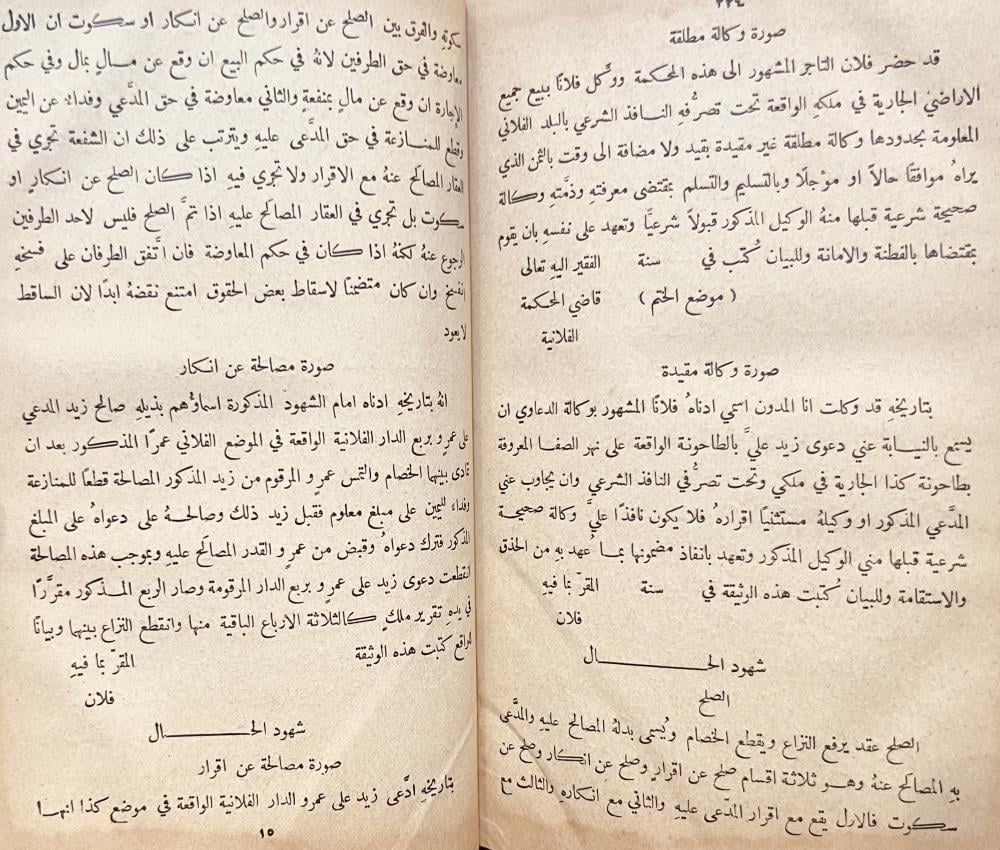 ٢٢٤
صورة وكالة مطلقة
قد حضر فلان التاجر المشهور الى هذه المحكمة ووكّل فلانًا ببيع جميع
الاراضي الجارية في ملكهِ الواقعة تحت تصرُّفهِ النافذ الشرعي بالبلد الفلاني
المعلومة بحدودها وكالة مطلقة غير مقيدة بقيد ولا مضافة الى وقت بالثمن الذي
يراهُ موافقًا حالاً او مؤجلًا وبالتسليم والتسلم بمقتضى معرفتهِ وذمَّتهِ وكالة
صحيحة شرعية قبلها منهُ الوكيل المذكور قبولاً شرعيًّا وتعهد على نفسهِ بان يقوم
بمقتضاها بالفطنة والامانة وللبيان كُتب في سنة الفقير اليهِ تعالى
( موضع الختم ) قاضي المحكمة
الفلانية
صورة وكالة مقيدة
بتاريخهِ قد وكلت انا المدون اسمي ادناهُ فلانًا المشهور بوكالة الدعاوي ان
يسمع بالنيابة عني دعوى زيد عليَّ بالطاحونة الواقعة على نهر الصفا المعروفة
بطاحونة كذا الجارية في ملكي وتحت تصرُّفي النافذ الشرعي وان يجاوب عني
المدَّعي المذكور او وكيلهُ مستثنيًا اقرارهُ فلا يكون نافذًا عليَّ وكالة صحيحة
شرعية قبلها مني الوكيل المذكور وتعهد بانفاذ مضمونها بما عُهد بهِ من الحذق
والاستقامة وللبيان كُتبت هذه الوثيقة في سنة المقرّ بما فيهِ
فلان
شهود الحـــال
الصلح
الصلح عقد يرفع النزاع ويقطع الخصام ويُسمى بدلهُ المصالح عليهِ والمدَّعى
بهِ المصالح عنهُ وهو ثلاثة اقسام صلح عن اقرار وصلح عن انكار وصلح عن
سكوت فالاول يقع مع اقرار المدَّعى عليهِ والثاني مع انكارهِ والثالث مع
سكوتهِ والفرق بين الصلح عن اقرار والصلح عن انكار او سكوت ان الاول
معاوضة في حق الطرفين لانهُ في حكم البيع ان وقع عن مال بمال وفي حكم
الاجارة ان وقع عن مالٍ بمنفعةٍ والثاني معاوضة في حق المدَّعي وفداء عن اليمين
وقطع للمنازعة في حق المدَّعى عليهِ ويترتب على ذلك ان الشفعة تجري في
العقار المصالَح عنهُ مع الاقرار ولا تجري فيهِ اذا كان الصلح عن انكارٍ او
سكوت بل تجري في العقار المصالح عليهِ اذا تمَّ الصلح فليس لاحد الطرفين
الرجوع عنهُ لكنهُ اذا كان في حكم المعاوضة فان اتَّفق الطرفان على فسخهِ
انفسخ وان كان متضمنًا لاسقاط بعض الحقوق امتنع نقضهُ ابدًا لان الساقط
لا يعود
صورة مصالحة عن انكار
انهُ بتاريخهِ ادناه امام الشهود المذكورة اسماؤهم بذيلهِ صالح زيد المدعي
على عمرٍو بربع الدار الفلانية الواقعة في الموضع الفلاني عمرًا المذكور بعد ان
تمادى بينهما الخصام والتمس عمرٍو المرقوم من زيد المذكور المصالحة قطعًا للمنازعة
وفداء لليمين على مبلغ معلوم فقبل زيد ذلك وصالحهُ على دعواهُ على المبلغ
المذكور فترك دعواهُ وقبض من عمرٍو القدر المصالَح عليهِ وبموجب هذه المصالحة
انقطعت دعوى زيد على عمرٍو بربع الدار المرقومة وصار الربع المذكور مقرَّرًا
في يدهِ تقرير ملكٍ كالثلاثة الارباع الباقية منها وانقطع النزاع بينهما وبيانًا
للواقع كتبت هذه الوثيقة المقرّ بما فيهِ
فلان
شهود الحـــال
صورة مصالحة عن اقرار
بتاريخهِ ادَّعى زيد على عمرٍو الدار الفلانية الواقعة في موضع كذا انهـا
١٥